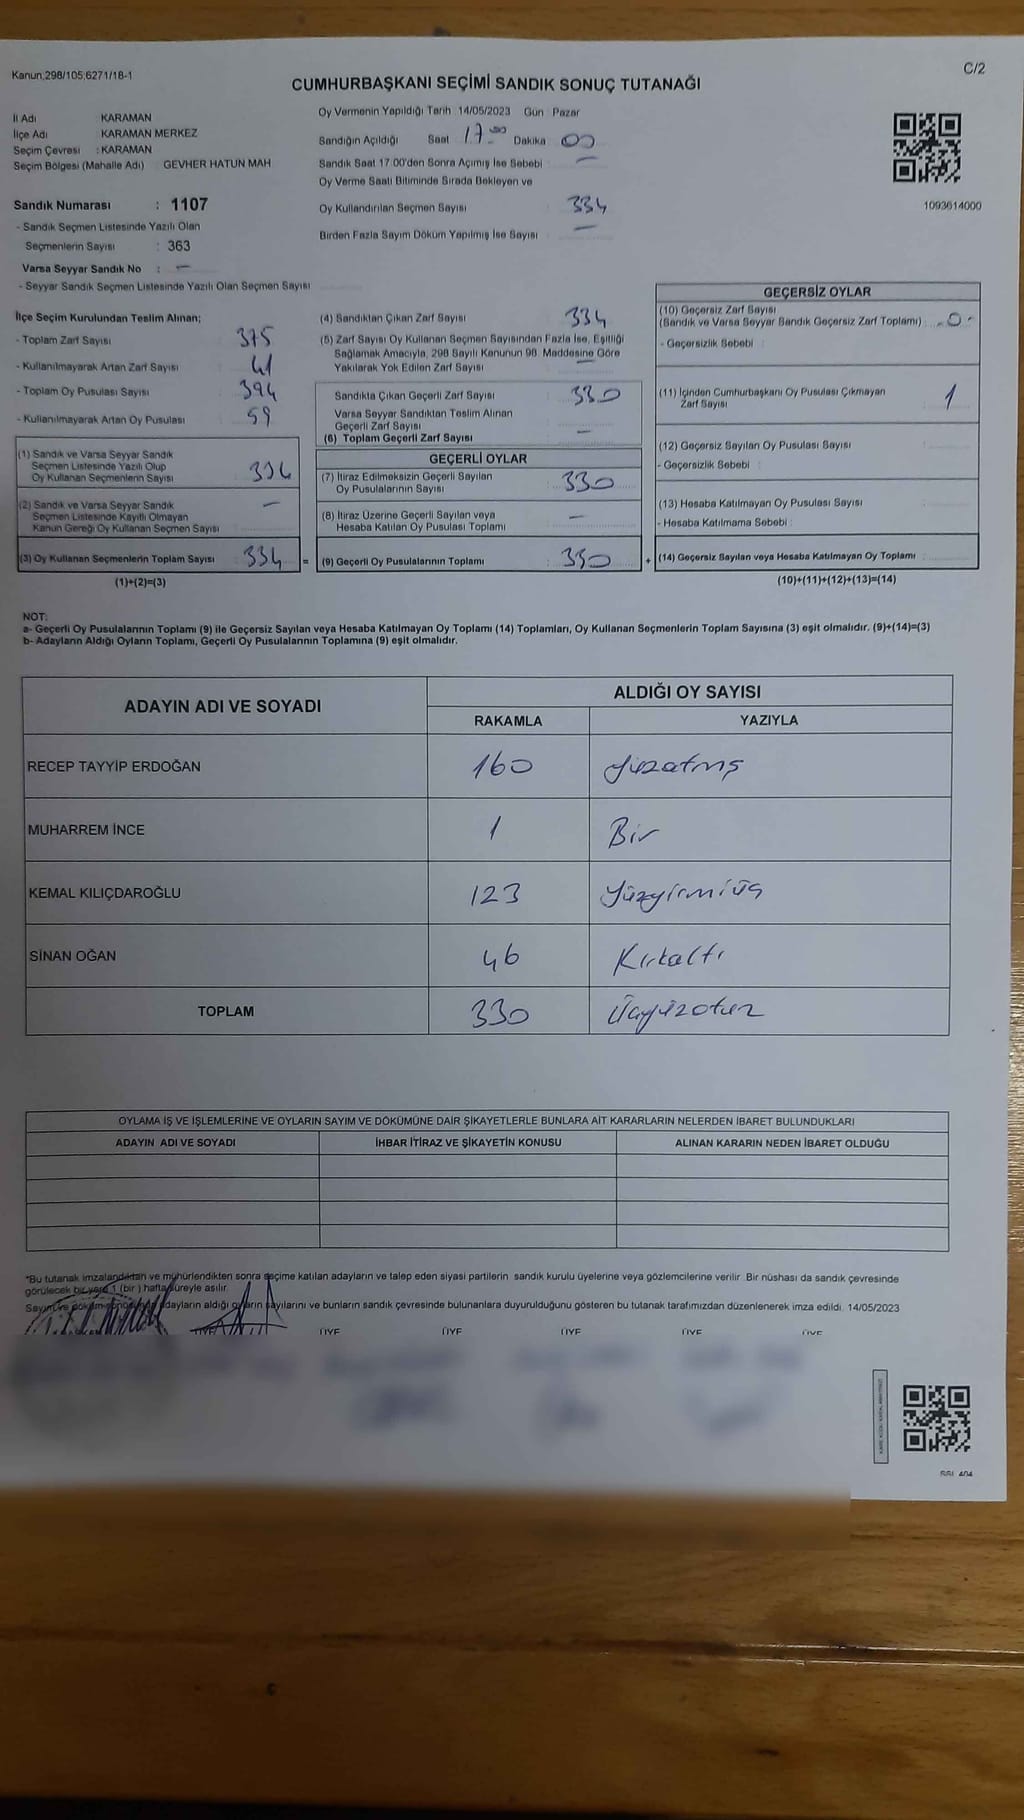 Kanun;298/105;6271/18-1
C/2
CUMHURBAŞKANI SEÇİMİ SANDIK SONUÇ TUTANAĞI
İl Adı KARAMAN
İlçe Adı KARAMAN MERKEZ
Seçim Çevresi : KARAMAN
Seçim Bölgesi (Mahalle Adı) GEVHER HATUN MAH
Sandık Numarası : 1107
- Sandık Seçmen Listesinde Yazılı Olan
Seçmenlerin Sayısı : 363
Varsa Seyyar Sandık No : -
- Seyyar Sandık Seçmen Listesinde Yazılı Olan Seçmen Sayısı
Oy Vermenin Yapıldığı Tarih 14/05/2023 Gün Pazar
Sandığın Açıldığı Saat 17.00 Dakika 00
Sandık Saat 17:00'den Sonra Açımış İse Sebebi : -
Oy Verme Saati Bitiminde Sırada Bekleyen ve
Oy Kullandırılan Seçmen Sayısı : 334
Birden Fazla Sayım Döküm Yapılmış İse Sayısı : -
1093614000
İlçe Seçim Kurulundan Teslim Alınan;
- Toplam Zarf Sayısı : 375
- Kullanılmayarak Artan Zarf Sayısı : 41
- Toplam Oy Pusulası Sayısı : 394
- Kullanılmayarak Artan Oy Pusulası : 59
(1) Sandık ve Varsa Seyyar Sandık
Seçmen Listesinde Yazılı Olup
Oy Kullanan Seçmenlerin Sayısı : 334
(2) Sandık ve Varsa Seyyar Sandık
Seçmen Listesinde Kayıtlı Olmayan
Kanun Gereği Oy Kullanan Seçmen Sayısı : -
(3) Oy Kullanan Seçmenlerin Toplam Sayısı : 334 =
(1)+(2)=(3)
(4) Sandıktan Çıkan Zarf Sayısı : 334
(5) Zarf Sayısı Oy Kullanan Seçmen Sayısından Fazla İse, Eşitliği
Sağlamak Amacıyla, 298 Sayılı Kanunun 98. Maddesine Göre
Yakılarak Yok Edilen Zarf Sayısı : -
Sandıkta Çıkan Geçerli Zarf Sayısı : 330
Varsa Seyyar Sandıktan Teslim Alınan
Geçerli Zarf Sayısı : -
(6) Toplam Geçerli Zarf Sayısı
GEÇERLİ OYLAR
(7) İtiraz Edilmeksizin Geçerli Sayılan
Oy Pusulalarının Sayısı : 330
(8) İtiraz Üzerine Geçerli Sayılan veya
Hesaba Katılan Oy Pusulası Toplamı : -
(9) Geçerli Oy Pusulalarının Toplamı : 330 +
GEÇERSİZ OYLAR
(10) Geçersiz Zarf Sayısı
(Sandık ve Varsa Seyyar Sandık Geçersiz Zarf Toplamı) : 0 -
- Geçersizlik Sebebi :
(11) İçinden Cumhurbaşkanı Oy Pusulası Çıkmayan
Zarf Sayısı : 1
(12) Geçersiz Sayılan Oy Pusulası Sayısı
- Geçersizlik Sebebi :
(13) Hesaba Katılmayan Oy Pusulası Sayısı
- Hesaba Katılmama Sebebi :
(14) Geçersiz Sayılan veya Hesaba Katılmayan Oy Toplamı :
(10)+(11)+(12)+(13)=(14)
NOT:
a- Geçerli Oy Pusulalarının Toplamı (9) ile Geçersiz Sayılan veya Hesaba Katılmayan Oy Toplamı (14) Toplamları, Oy Kullanan Seçmenlerin Toplam Sayısına (3) eşit olmalıdır. (9)+(14)=(3)
b- Adayların Aldığı Oyların Toplamı, Geçerli Oy Pusulalarının Toplamına (9) eşit olmalıdır.
ADAYIN ADI VE SOYADI
ALDIĞI OY SAYISI
RAKAMLA YAZIYLA
RECEP TAYYİP ERDOĞAN 160 Yüzatmış
MUHARREM İNCE 1 Bir
KEMAL KILIÇDAROĞLU 123 Yüzyirmiüç
SİNAN OĞAN 46 Kırkaltı
TOPLAM 330 Üçyüzotuz
OYLAMA İŞ VE İŞLEMLERİNE VE OYLARIN SAYIM VE DÖKÜMÜNE DAİR ŞİKAYETLERLE BUNLARA AİT KARARLARIN NELERDEN İBARET BULUNDUKLARI
ADAYIN ADI VE SOYADI İHBAR İTİRAZ VE ŞİKAYETİN KONUSU ALINAN KARARIN NEDEN İBARET OLDUĞU
*Bu tutanak imzalandıktan ve mühürlendikten sonra seçime katılan adayların ve talep eden siyasi partilerin sandık kurulu üyelerine veya gözlemcilerine verilir. Bir nüshası da sandık çevresinde
görülecek bir yere 1 (bir) hafta süreyle asılır.
Sayım ve döküm sonucunda adayların aldığı oyların sayılarını ve bunların sandık çevresinde bulunanlara duyurulduğunu gösteren bu tutanak tarafımızdan düzenlenerek imza edildi. 14/05/2023
ÜYE ÜYE ÜYE ÜYE ÜYE ÜYE